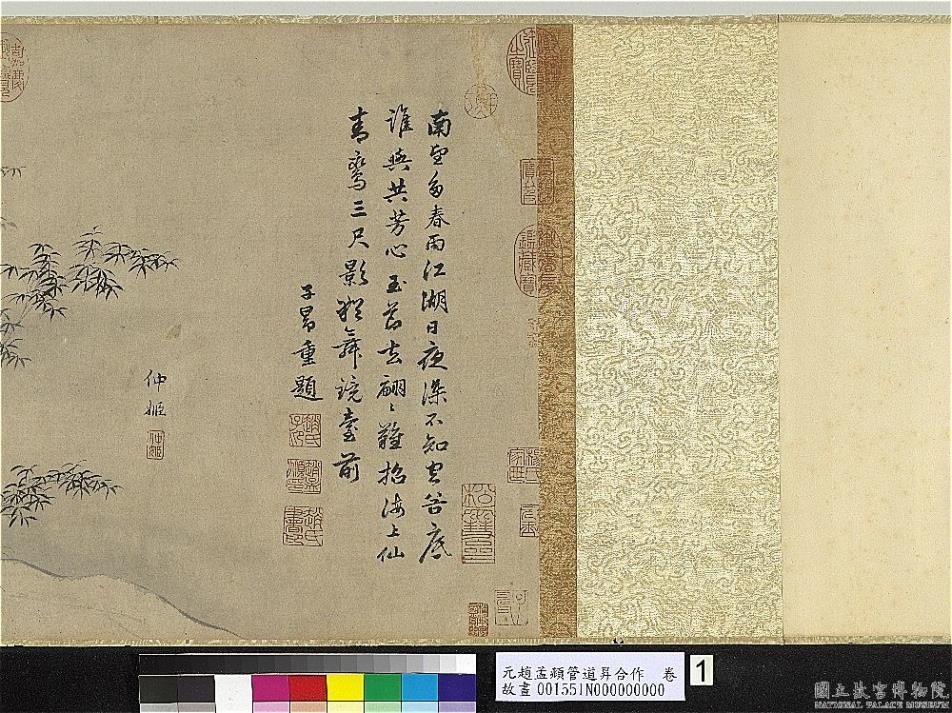 南望多春雨江湖日夜深不知空谷底
誰與共芳心玉節去翩〻難招海上仙
青鸞三尺影舞鏡臺前
子昂重題
趙氏子昂
趙氏書印
仲姬
仲姬
松雪齋
元趙孟頫管道昇合作 卷
故畫 001551N000000000
1
國立故宮博物院
NATIONAL PALACE MUSEUM